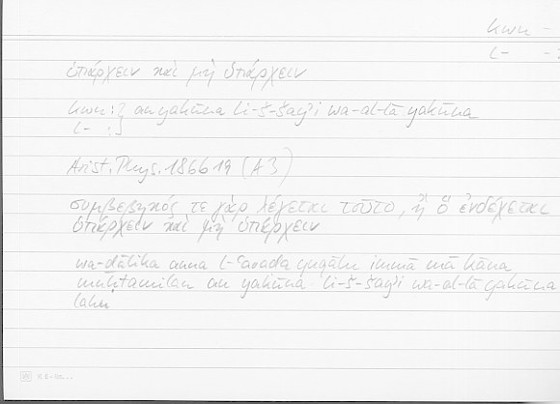 kwn -
l- -
ὑπάρχειν καὶ μὴ ὑπάρχειν
kwn :} an yakūna li-š-šayʾi wa-al-lā yakūna
l- :}
Arist. Phys. 186b19 (A3)
συμβεβηκός τε γὰρ λέγεται τοῦτο, ἢ ὃ ἐνδέχεται
ὑπάρχειν καὶ μὴ ὑπάρχειν
wa-ḏālika anna l-ʿaraḍa yuqālu immā mā kāna
muḥtamilan an yakūna li-š-šayʾi wa-al-lā yakūna
lahu